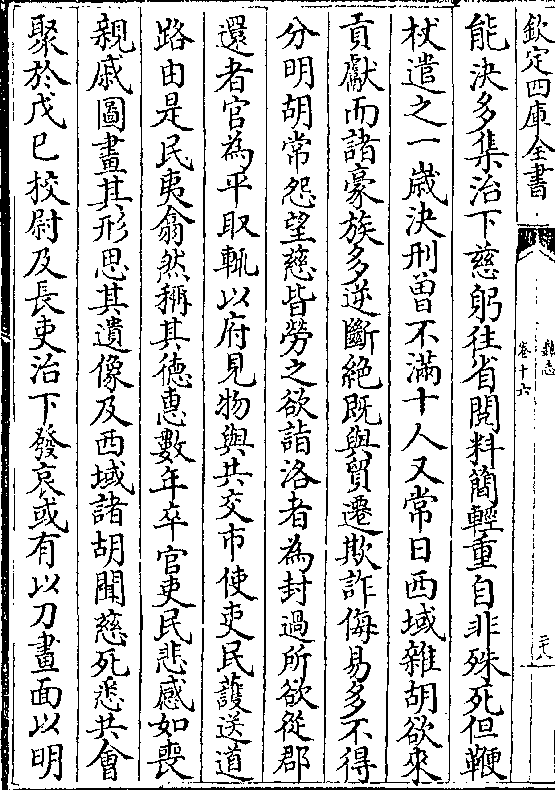 欽定四庫全書
魏志
卷十六
二十八
能決多集治下慈躬往省閱料簡輕重自非殊死但鞭
杖遣之一嵗決刑曽不滿十人又常日西域雜胡欲來
貢獻而諸豪族多逆斷絶既與貿遷欺詐侮易多不得
分明胡常怨望慈皆勞之欲詣洛者為封過所欲從郡
還者官為平取輒以府見物與共交市使吏民護送道
路由是民夷翕然稱其徳恵數年卒官吏民悲感如喪
親戚圖畫其形思其遺像及西域諸胡聞慈死悉共會
聚於戊巳校尉及長吏治下發哀或有以刀畫面以明